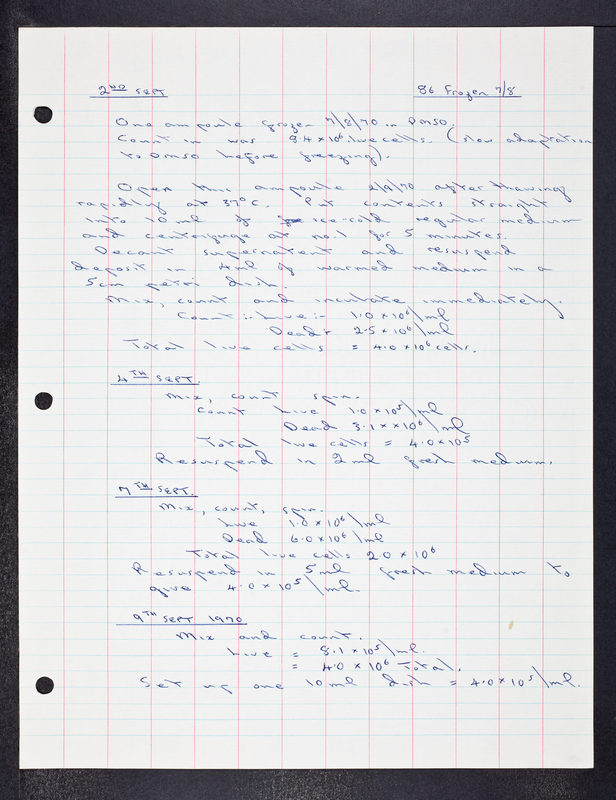 2ND SEPT 86 Frozen 7/8
One ampoule frozen 7/8/70 in DMSO.
Count in was 8.4 x 10⁶ live cells. (slow adaptation
to DMSO before freezing).
Open this ampoule 2/9/70 after thawing
rapidly at 37°C. Put contents straight
into 10 ml of ice-cold regular medium
and centrifuge at no.1 for 5 minutes.
Decant supernatent and resuspend
deposit in 4ml of warmed medium in a
5cm petri dish.
Mix, count and incubate immediately.
Count :- Live :- 1.0 x 10⁶/ml
Dead :- 2.5 x 10⁶/ml
Total live cells = 4.0 x 10⁶ cells.
4TH SEPT.
Mix, count spin.
Count Live 1.0 x 10⁵/ml
Dead 3.1 x x10⁶/ml
Total live cells = 4.0 x 10⁵
Resuspend in 2ml fresh medium.
7TH SEPT.
Mix, count, spin.
Live 1.0 x 10⁶/ml
Dead 6.0 x 10⁶/ml
Total live cells 2.0 x 10⁶
Resuspend in 5ml fresh medium to
give 4.0 x 10⁵/ml.
9TH SEPT 1970
Mix and count.
Live = 8.1 x 10⁵/ml.
= 4.0 x 10⁶ Total.
Set up one 10ml dish = 4.0 x 10⁵/ml.